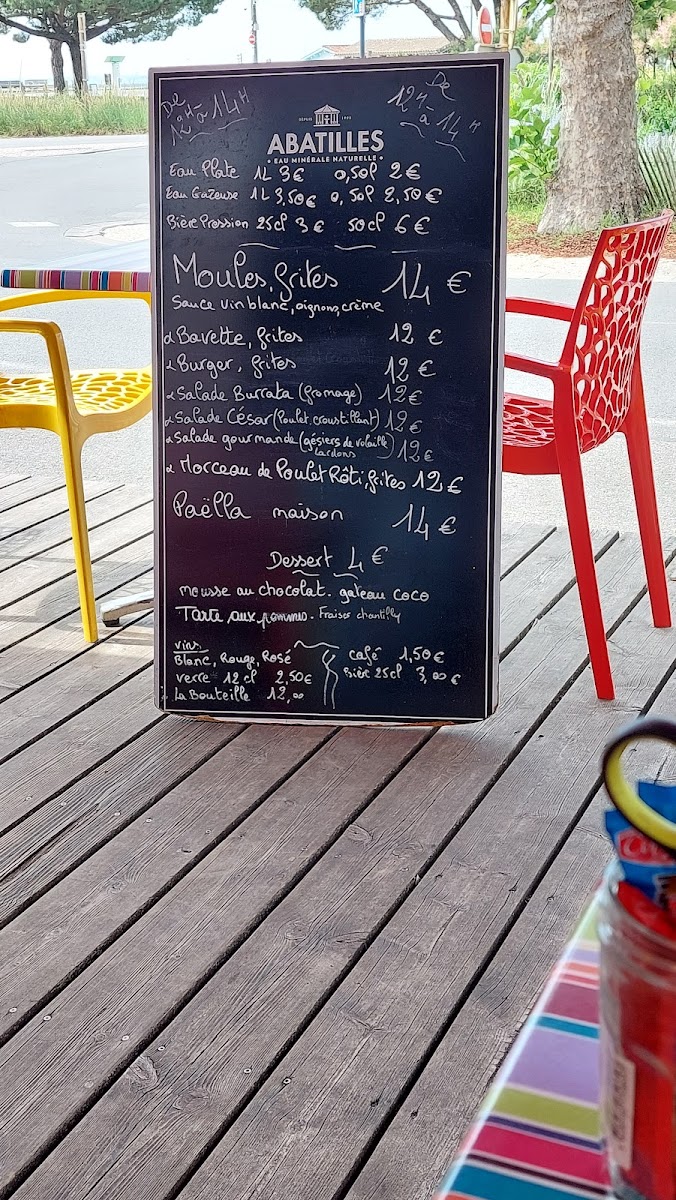 De
12H à 14H
De
12H à 14H
DEPUIS 1925
ABATILLES
• EAU MINÉRALE NATURELLE •
Eau Plate 1L 3€ 0,50l 2€
Eau Gazeuse 1L 3,50€ 0,50l 2,50€
Bière Pression 25cl 3€ 50cl 6€
Moules, frites 14€
Sauce vin blanc, oignons, crème
Bavette, frites 12€
Burger, frites 12€
Salade Burrata (fromage) 12€
Salade César (Poulet croustillant) 12€
Salade gourmande (gésiers de volaille lardons) 12€
Morceau de Poulet Rôti, frites 12€
Paëlla maison 14€
Dessert 4€
mousse au chocolat. gateau coco
Tarte aux pommes. Fraises chantilly
vins
Blanc, Rouge, Rosé
verre 12cl 2,50€
La Bouteille 12,00
café 1,50€
Bière 25cl 3,00€